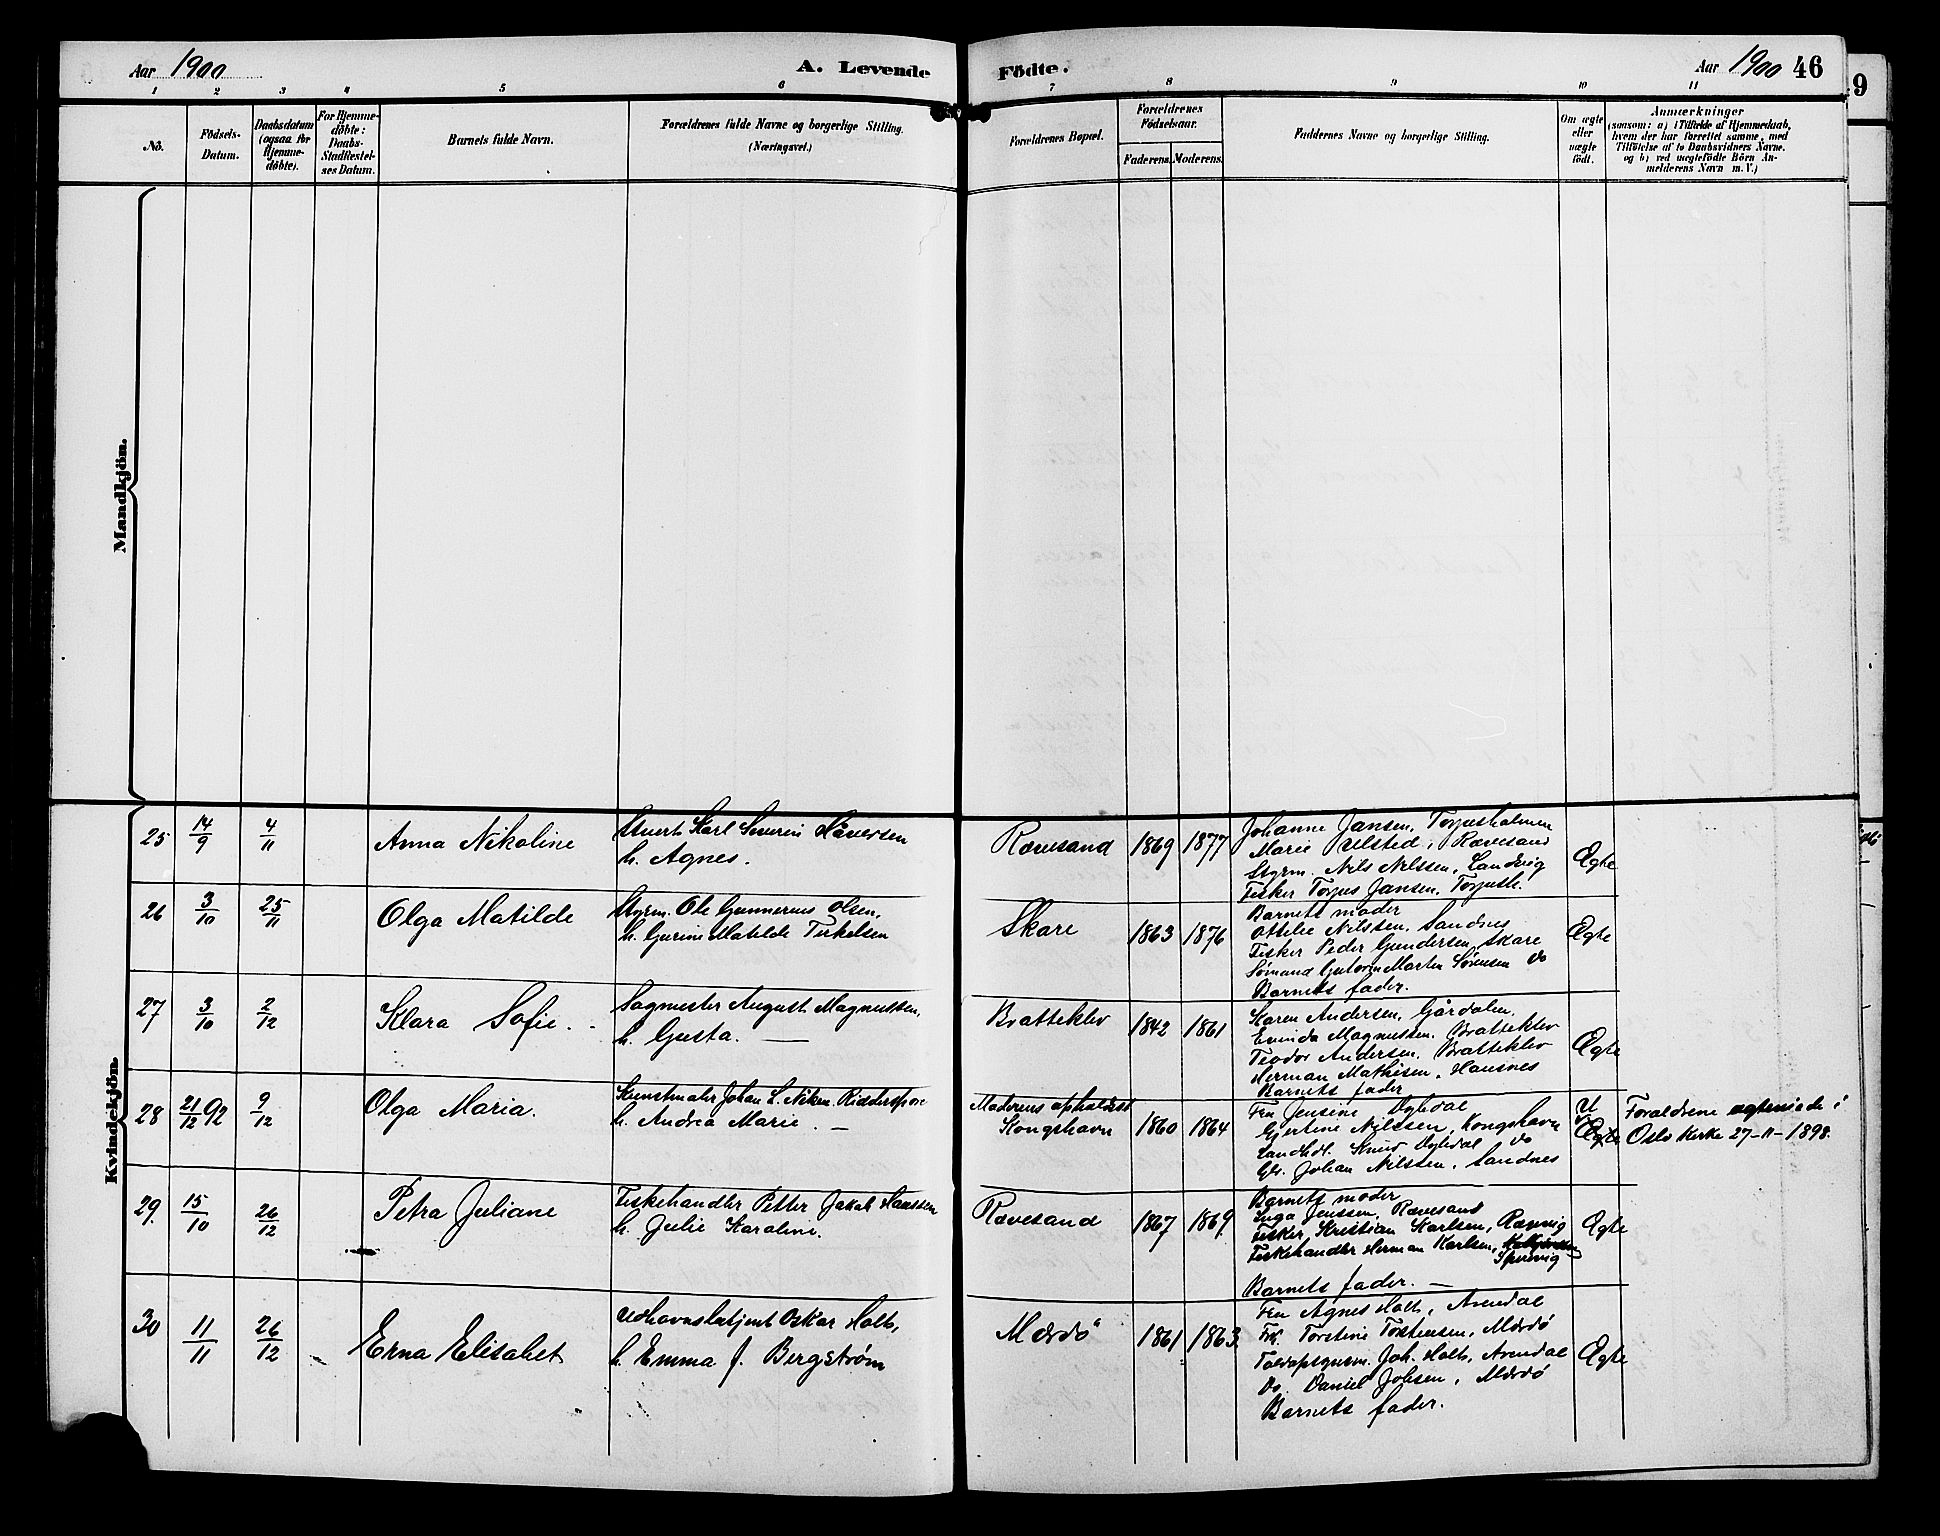 Aar 1900 A. Levende Födte. Aar 1900 46
9
1 2 3 4 5 6 7 8 9 10 11
No. Födsels-Datum. Daabsdatum (ogsaa for Hjemmedöbte). For Hjemmedöbte: Daabs-Stadfæstelses Datum. Barnets fulde Navn. Forældrenes fulde Navne og borgerlige Stilling. (Næringsvei.) Forældrenes Bopæl. Forældrenes Födselsaar. Faderens. Moderens. Faddernes Navne og borgerlige Stilling. Om ægte eller uægte födt. Anmærkninger (saasom: a) i Tilfælde af Hjemmedaab, hvem der har forrettet samme, med Tilföielse af to Daabsvidners Navne. og b) ved uægtefödte Börn Anmelderens Navn m. V.)
Mandkjön.
Kvindekjön
25 14/9 4/11 Anna Nikoline Stuert Karl Severin Håversen
h. Agnes.
Rævesand 1869 1877 Johanne Jansen, Torjusholmen
Marie Ulsted, Rævesand
Styrm. Nils Nilssen, Landvig
Fisker Torjus Jansen, Torjush.
Ægte
26 3/10 25/11 Olga Matilde Styrm. Ole Gunnerius Olsen,
h. Gurine Matilde Terkelsen
Skare 1863 1876 Barnets moder
Ottelie Nilssen, Sandnes
Fisker Peder Gundersen, Skare
Sömand Martin Sörensen Do
Barnets fader.
Ægte
27 3/10 2/12 Klara Sofie. Sagmester August Magnussen,
h. Gusta.
Bratteklev 1842 1861 Karen Andersen, Gårdalen,
Magnussen, Bratteklev
Teodor Andersen, Bratteklev
Herman Mathisen, Hausnes
Barnets fader
Ægte
28 21/12 92 9/12 Olga Maria. Kunstmaler Johan L. Ridderspore
h. Andrea Marie. —
Moderens opholdsst
Kongshavn 1860 1864 Fru Jensine Dybedal
Gjertine Nilssen, Kongshavn
Landhdl. Knud Dybedal Do
Johan Nilssen, Sandnes
U
Ægte
Forældrene ægteviede i
Oslo Kirke 27-11-1898.
29. 15/10 26/12 Petra Juliane Fiskehandler Petter Jakob Hanssen
h. Julie Karoline.
Rævesand 1867 1869 Barnets moder
Inga Jenssen, Rævesand
Fisker, Kristian Karlsen, Rævvig
Fiskehandler Herman Karlsen,
Spervvig
Barnets fader. —
Ægte
30 11/11 26/12 Erna Elisabet Udhavnsbetjent Oskar Holt,
h. Emma f. Bergström
Mærdö 1861 1863. Fru Agnes Holt, Arendal
Frk. Torstine Torstensen, Mærdö
Toldopsynsm. Joh. Holt, Arendal
Do. Daniel Jobsen, Mærdö
Barnets fader.
Ægte